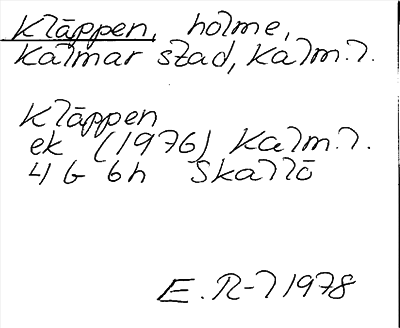 Kläppen, holme,
Kalmar stad, Kalm.l.
Kläppen
ek (1976) Kalm.l.
4 G 6h Skallö
E. R-l 1978